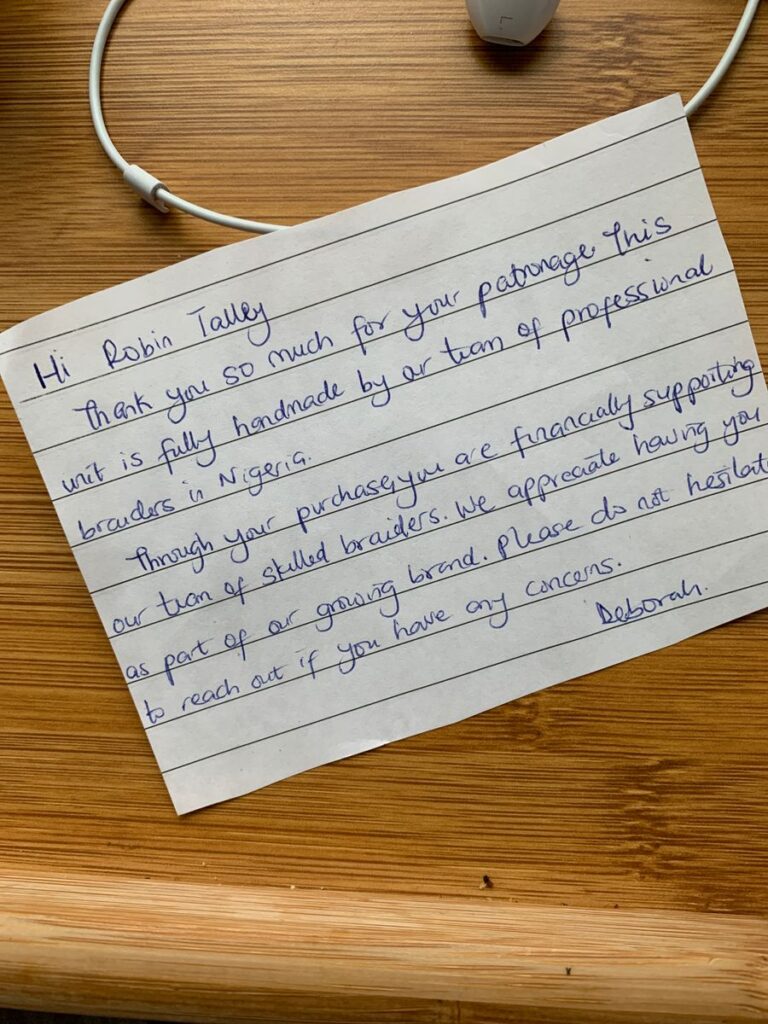 Hi Robin Talley
Thank you so much for your patronage. This
unit is fully handmade by our team of professional
braiders in Nigeria.
Through your purchase, you are financially supporting
our team of skilled braiders. We appreciate having you
as part of our growing brand. please do not hesitate
to reach out if you have any concerns.
Deborah.
L